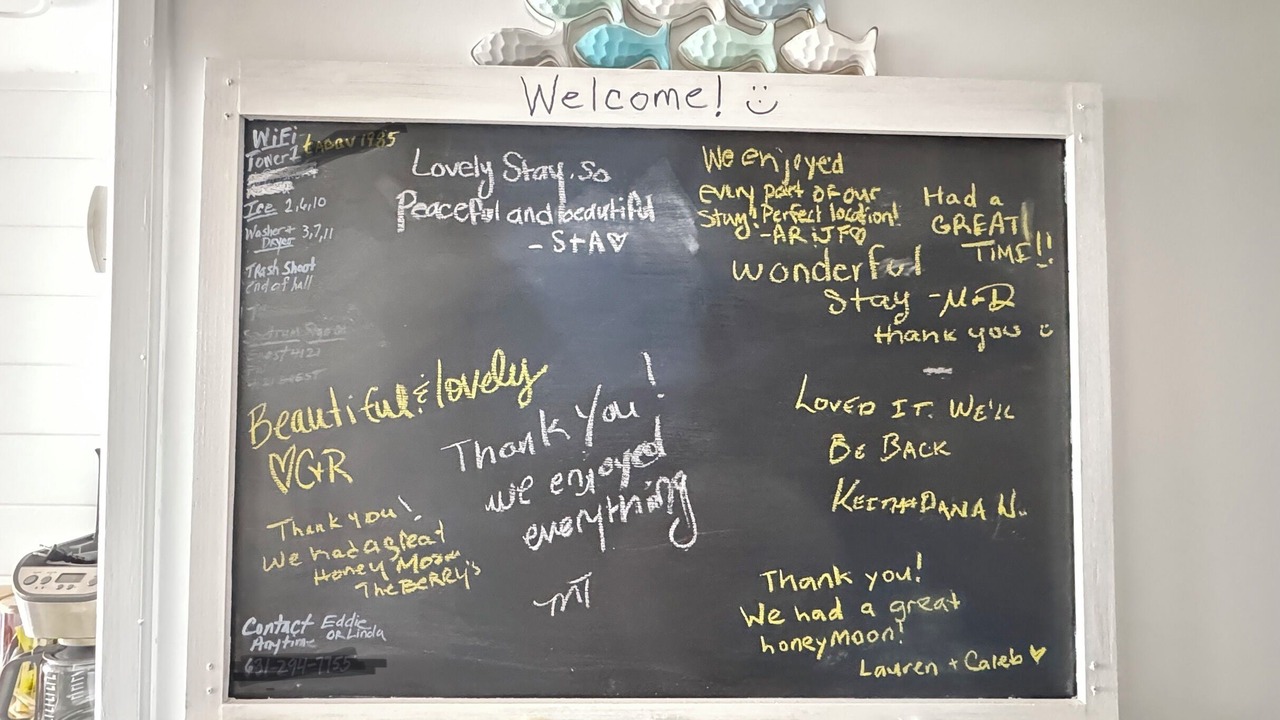 Welcome! :)
WiFi
Tower1
Ice 2,6,10
Washer+ 3,7,11
Dryer
Trash Shoot
end of hall
Lovely Stay. So
Peaceful and beautiful
- S+A♡
We enjoyed
every part of our
stay! Perfect location!
-AR & JF♡
Had a
GREAT!
TIME!!
wonderful
Stay -M+D
thank you :)
Beautiful & lovely
♡G+R
Thank you!
we enjoyed
everything
TNT
Loved It. We'll
Be Back
Keith+Dana N.
Thank you!
We had a great
Honey Moon
The BERRY's
Thank you!
We had a great
honeymoon!
Lauren + Caleb ♥
Contact Eddie
Anytime OR Linda